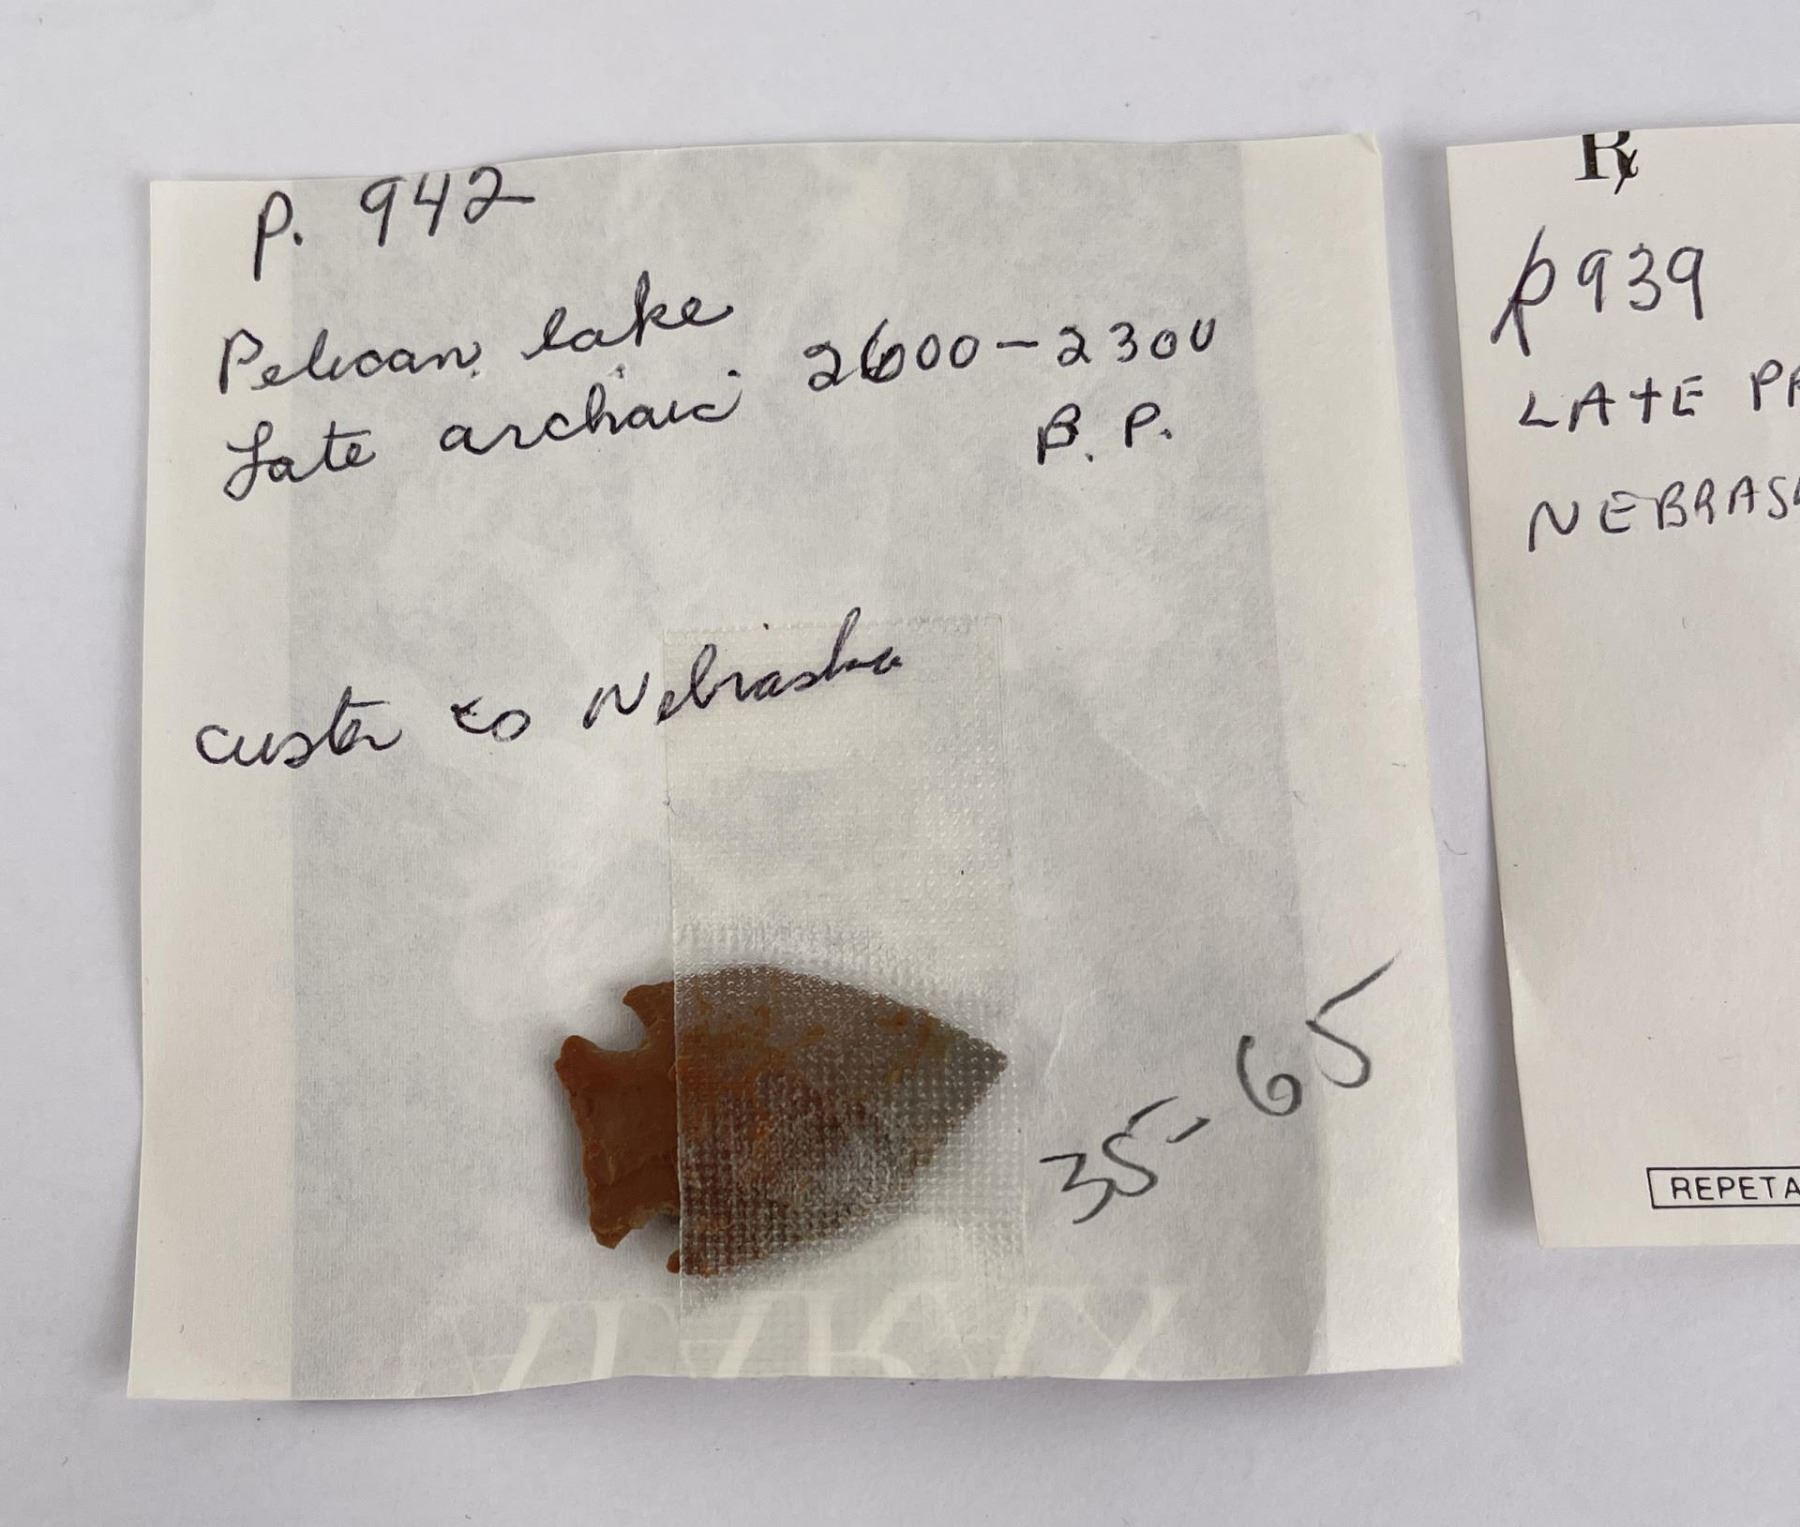 P. 942
Pelican lake
Late archaic 2600-2300
B. P.
Custer co Nebraska
35-65
R
p939
LATE PR
NEBRASK
REPETA